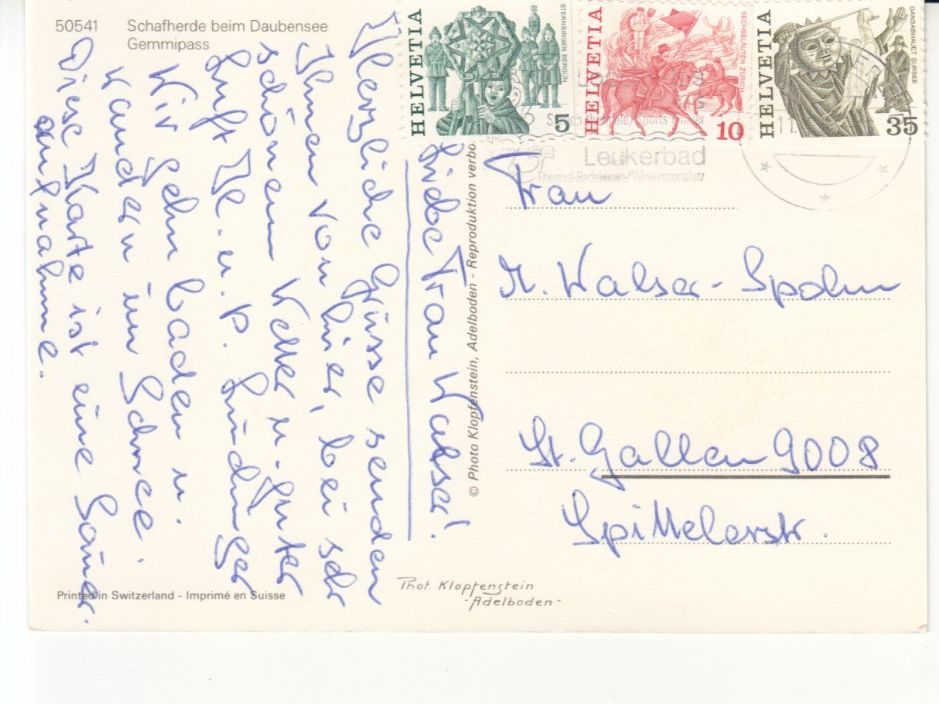 50541 Schafherde beim Daubensee
Gemmipass
Liebe Frau Walser!
Herzliche Grüsse senden
Ihnen von hier, bei sehr
schönem Wetter u. guter
Luft H. u. P. Lündinger
Wir gehn baden u.
wandern im Schnee.
Diese Karte ist eine Sauer-
aufnahme.
Printed in Switzerland - Imprimé en Suisse
Phot. Klopfenstein
-Adelboden-
© Photo Klopfenstein, Adelboden - Reproduktion verbo
HELVETIA
STERNSINGEN BERGÜN
5
HELVETIA
SECHSELÄUTEN ZÜRICH
10
HELVETIA
GANSABHAUET SURSEE
35
Leukerbad
Frau
M. Walser-Spohn
St. Gallen 9008
Spittelerstr.